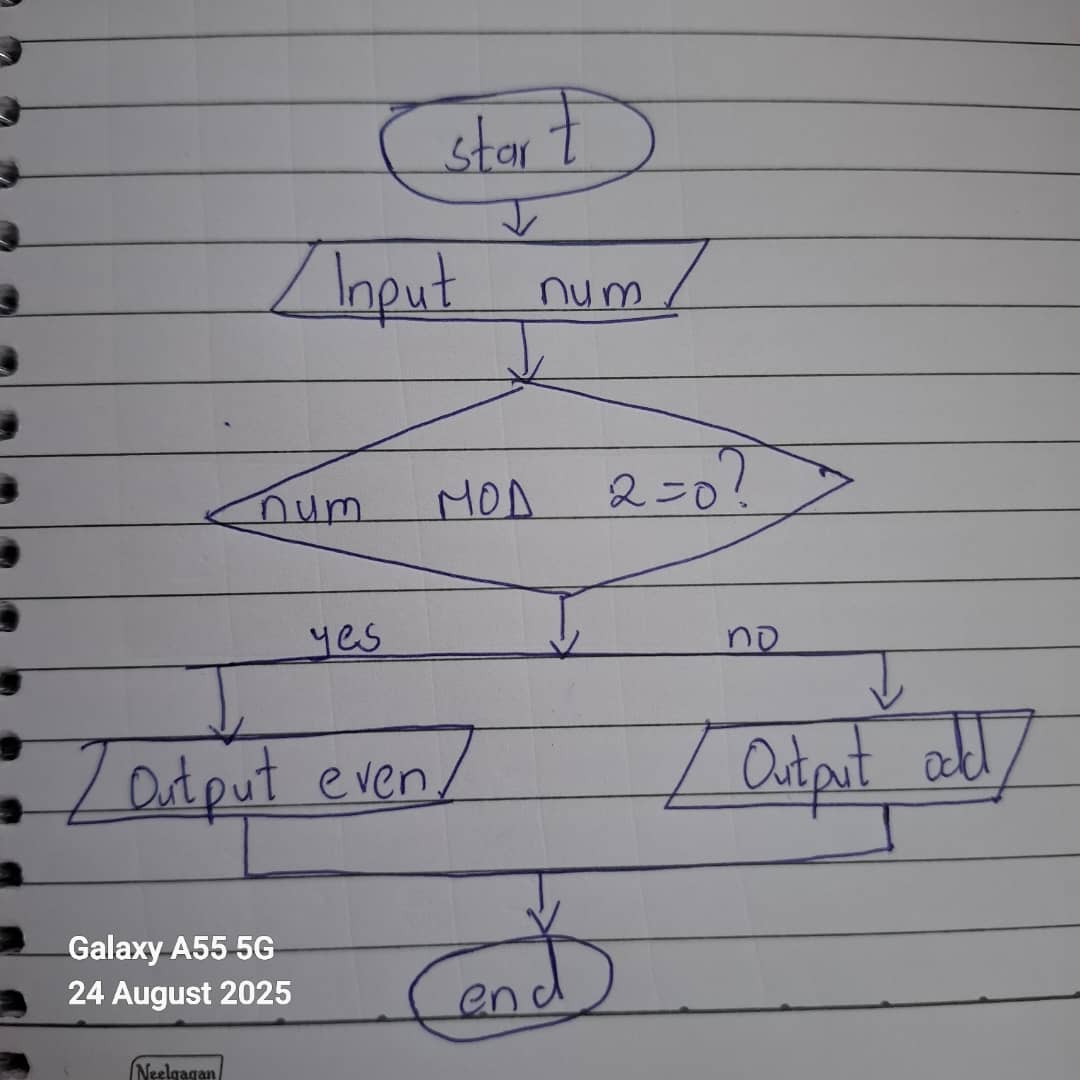 start
Input num
num MOD 2=0?
yes no
Output even
Output odd
Galaxy A55 5G
24 August 2025
end
Neelgagan